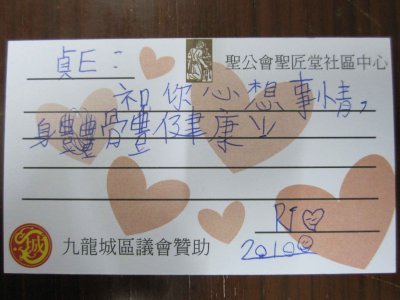 聖公會聖匠堂社區中心
貞E：
祝你心想事情，
身體體健康！
RT
2010
九龍城區議會贊助
城